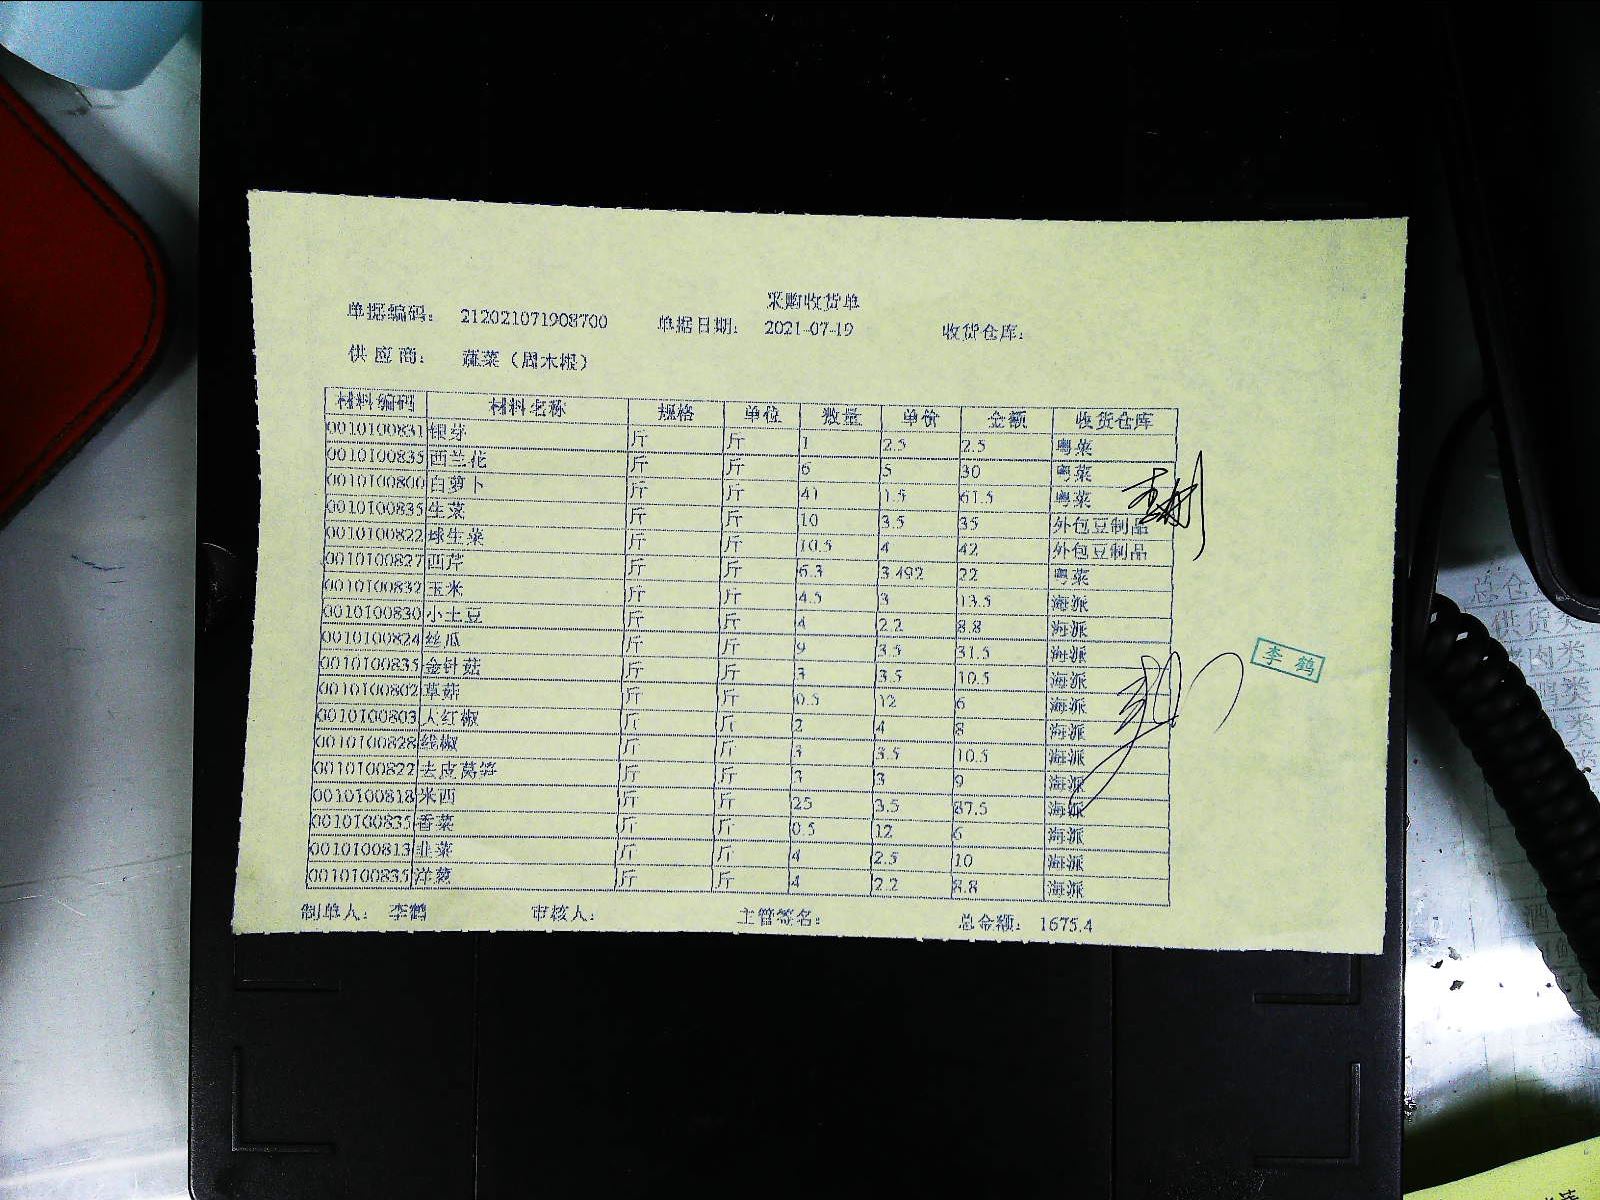 采购收货单
单据编码： 212021071908700 单据日期： 2021-07-19 收货仓库：
供应商： 蔬菜（周木根）
材料编码 材料名称 规格 单位 数量 单价 金额 收货仓库
0010100831 银芽 斤 斤 1 2.5 2.5 粤菜
0010100835 西兰花 斤 斤 6 5 30 粤菜
0010100800 白萝卜 斤 斤 41 1.5 61.5 粤菜
0010100835 生菜 斤 斤 10 3.5 35 外包豆制品
0010100822 球生菜 斤 斤 10.5 4 42 外包豆制品
0010100827 西芹 斤 斤 6.3 3.492 22 粤菜
0010100832 玉米 斤 斤 4.5 3 13.5 海派
0010100830 小土豆 斤 斤 4 2.2 8.8 海派
0010100824 丝瓜 斤 斤 9 3.5 31.5 海派
0010100835 金针菇 斤 斤 3 3.5 10.5 海派
0010100802 草菇 斤 斤 0.5 12 6 海派
0010100803 大红椒 斤 斤 2 4 8 海派
0010100828 线椒 斤 斤 3 3.5 10.5 海派
0010100822 去皮莴笋 斤 斤 3 3 9 海派
0010100818 米西 斤 斤 25 3.5 87.5 海派
0010100835 香菜 斤 斤 0.5 12 6 海派
0010100813 韭菜 斤 斤 4 2.5 10 海派
0010100835 洋葱 斤 斤 4 2.2 8.8 海派
制单人： 李鹤 审核人： 主管签名： 总金额： 1675.4
李鹤
总仓
供货类
肉类